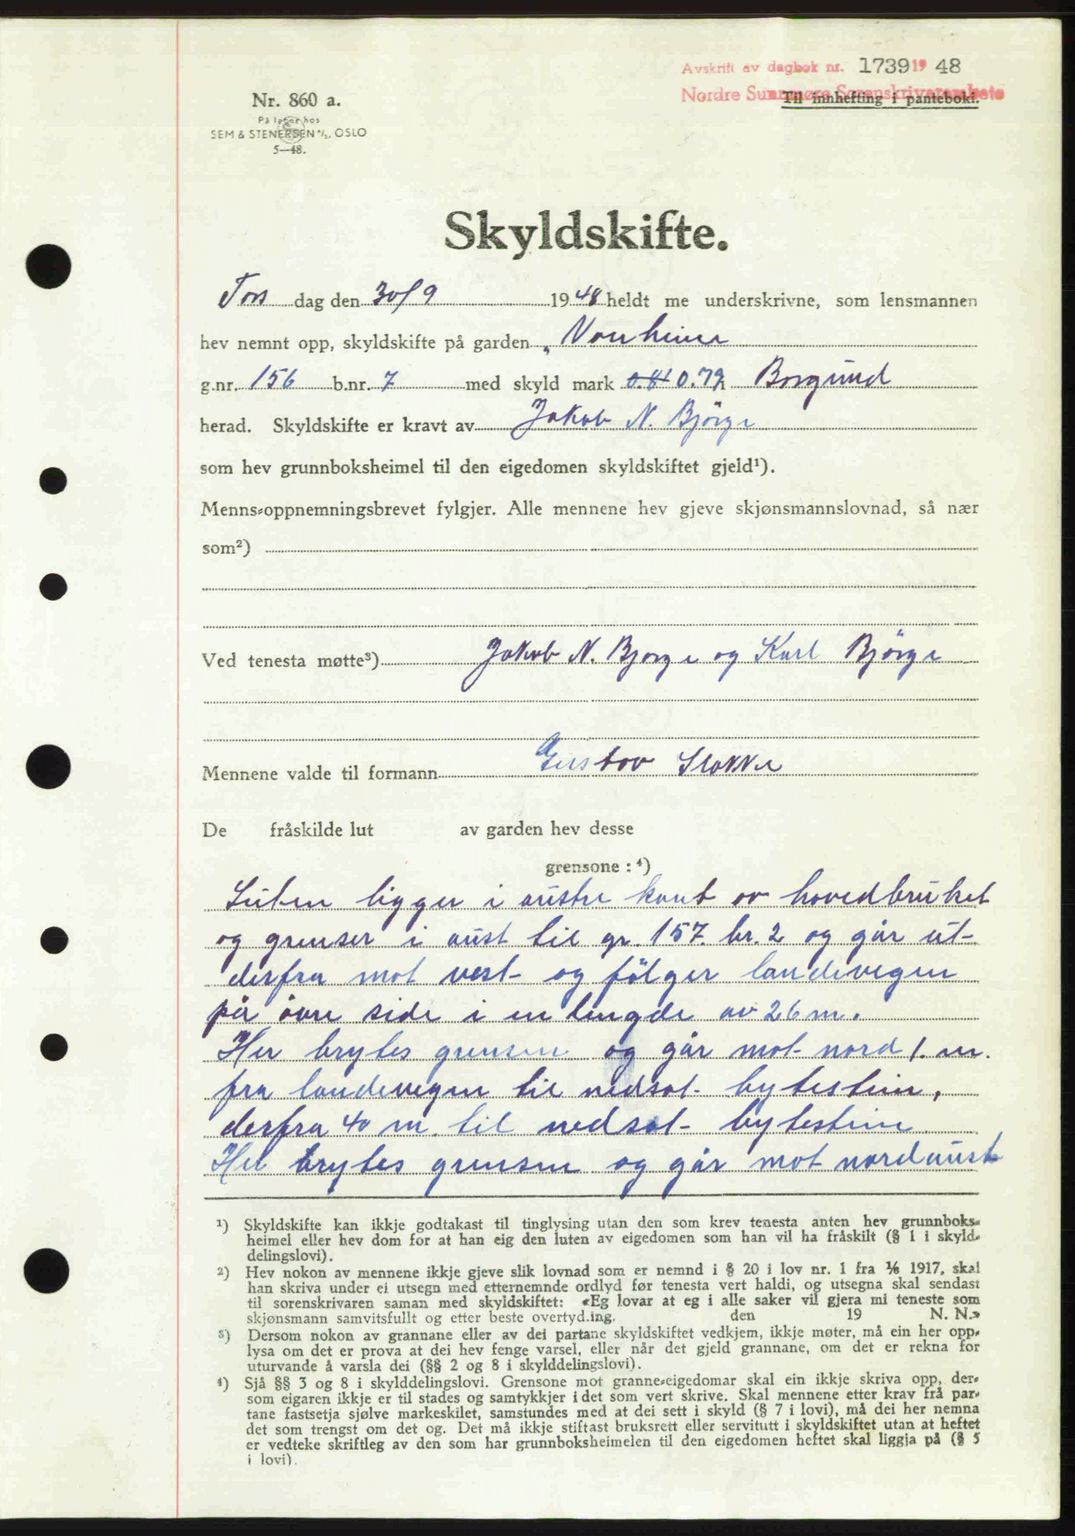 Avskrift av dagbok nr. 1739 19 48
Nordre Sunnmøre Sorenskriverembete
Til innhefting i panteboki.
Nr. 860 a.
På lager hos
SEM & STENERSEN A/S, OSLO
5—48.
Skyldskifte.
Tors dag den 30/9 1948 heldt me underskrivne, som lensmannen
hev nemnt opp, skyldskifte på garden „Vonheim
g.nr. 156 b.nr. 7 med skyld mark 0.81 0.72 Borgund
herad. Skyldskifte er kravt av Jakob N. Bjørge
som hev grunnboksheimel til den eigedomen skyldskiftet gjeld¹).
Menns-oppnemningsbrevet fylgjer. Alle mennene hev gjeve skjønsmannslovnad, så nær
som²)
Ved tenesta møtte³) Jakob N. Bjørge og Karl Bjørge
Mennene valde til formann Gustav Slokke
De fråskilde lut av garden hev desse
grensone : ⁴)
Luten ligger i austre kant av hovedbruket
og grenser i aust til gr. 157. br. 2 og går ut-
derfra mot vest- og følger landevegen
på øvre side i en lengde av 26 m.
Her brytes grensen og går mot nord 1. m.
fra landevegen til nedsat- bytestein,
derfra 40 m. til nedsat- bytestein
Her brytes grensen og går mot nordaust
¹) Skyldskifte kan ikkje godtakast til tinglysing utan den som krev tenesta anten hev grunnboks-
heimel eller hev dom for at han eig den luten av eigedomen som han vil ha fråskilt (§ 1 i skyld-
delingslovi).
²) Hev nokon av mennene ikkje gjeve slik lovnad som er nemnd i § 20 i lov nr. 1 fra 1/6 1917, skal
han skriva under ei utsegn med etternemnde ordlyd før tenesta vert haldi, og utsegna skal sendast
til sorenskrivaren saman med skyldskiftet: «Eg lovar at eg i alle saker vil gjera mi teneste som
skjønsmann samvitsfullt og etter beste overtyding. den 19 N. N.»
³) Dersom nokon av grannane eller av dei partane skyldskiftet vedkjem, ikkje møter, må ein her opp-
lysa om det er prova at dei hev fenge varsel, eller når det gjeld grannane, om det er rekna for
uturvande å varsla dei (§§ 2 og 8 i skylddelingslovi).
⁴) Sjå §§ 3 og 8 i skylddelingslovi. Grensone mot granne-eigedomar skal ein ikkje skriva opp, der-
som eigaren ikkje er til stades og samtykkjer i det som vert skrive. Skal mennene etter krav frå par-
tane fastsetja sjølve markeskilet, samstundes med at dei sett i skyld (§ 7 i lovi), må dei her nemna
det som trengst om det og. Det må ikkje stiftast bruksrett eller servitutt i skyldskiftet utan at heftet
er vedteke skriftleg av den som har grunnboksheimelen til den eigedomen heftet skal liggja på (§ 5
i lovi).